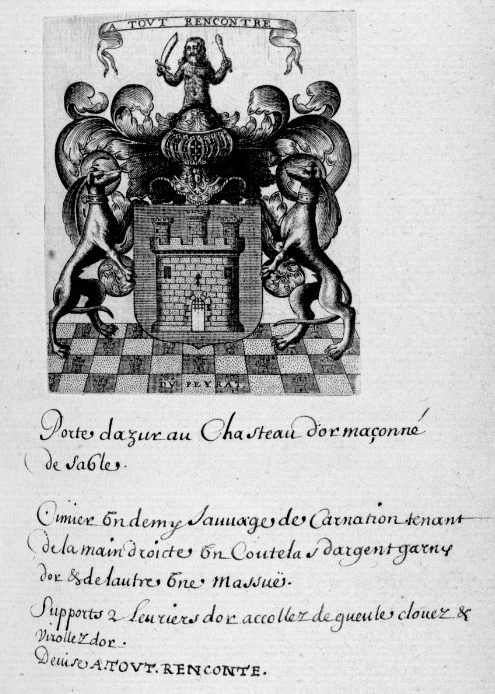 A TOVT RENCONTRE
DV PEYRAT
Porte dazur au Chasteau d'or maçonné
de sable.
Cimier Vn demy Sauuage de Carnation tenant
de la main droicte Vn Coutelas dargent garny
dor & de lautre Vne Massuë.
Supports 2 Leuriers dor accollez de gueule clouez &
Virollez dor.
Deuise A.TOVT.RENCONTE.